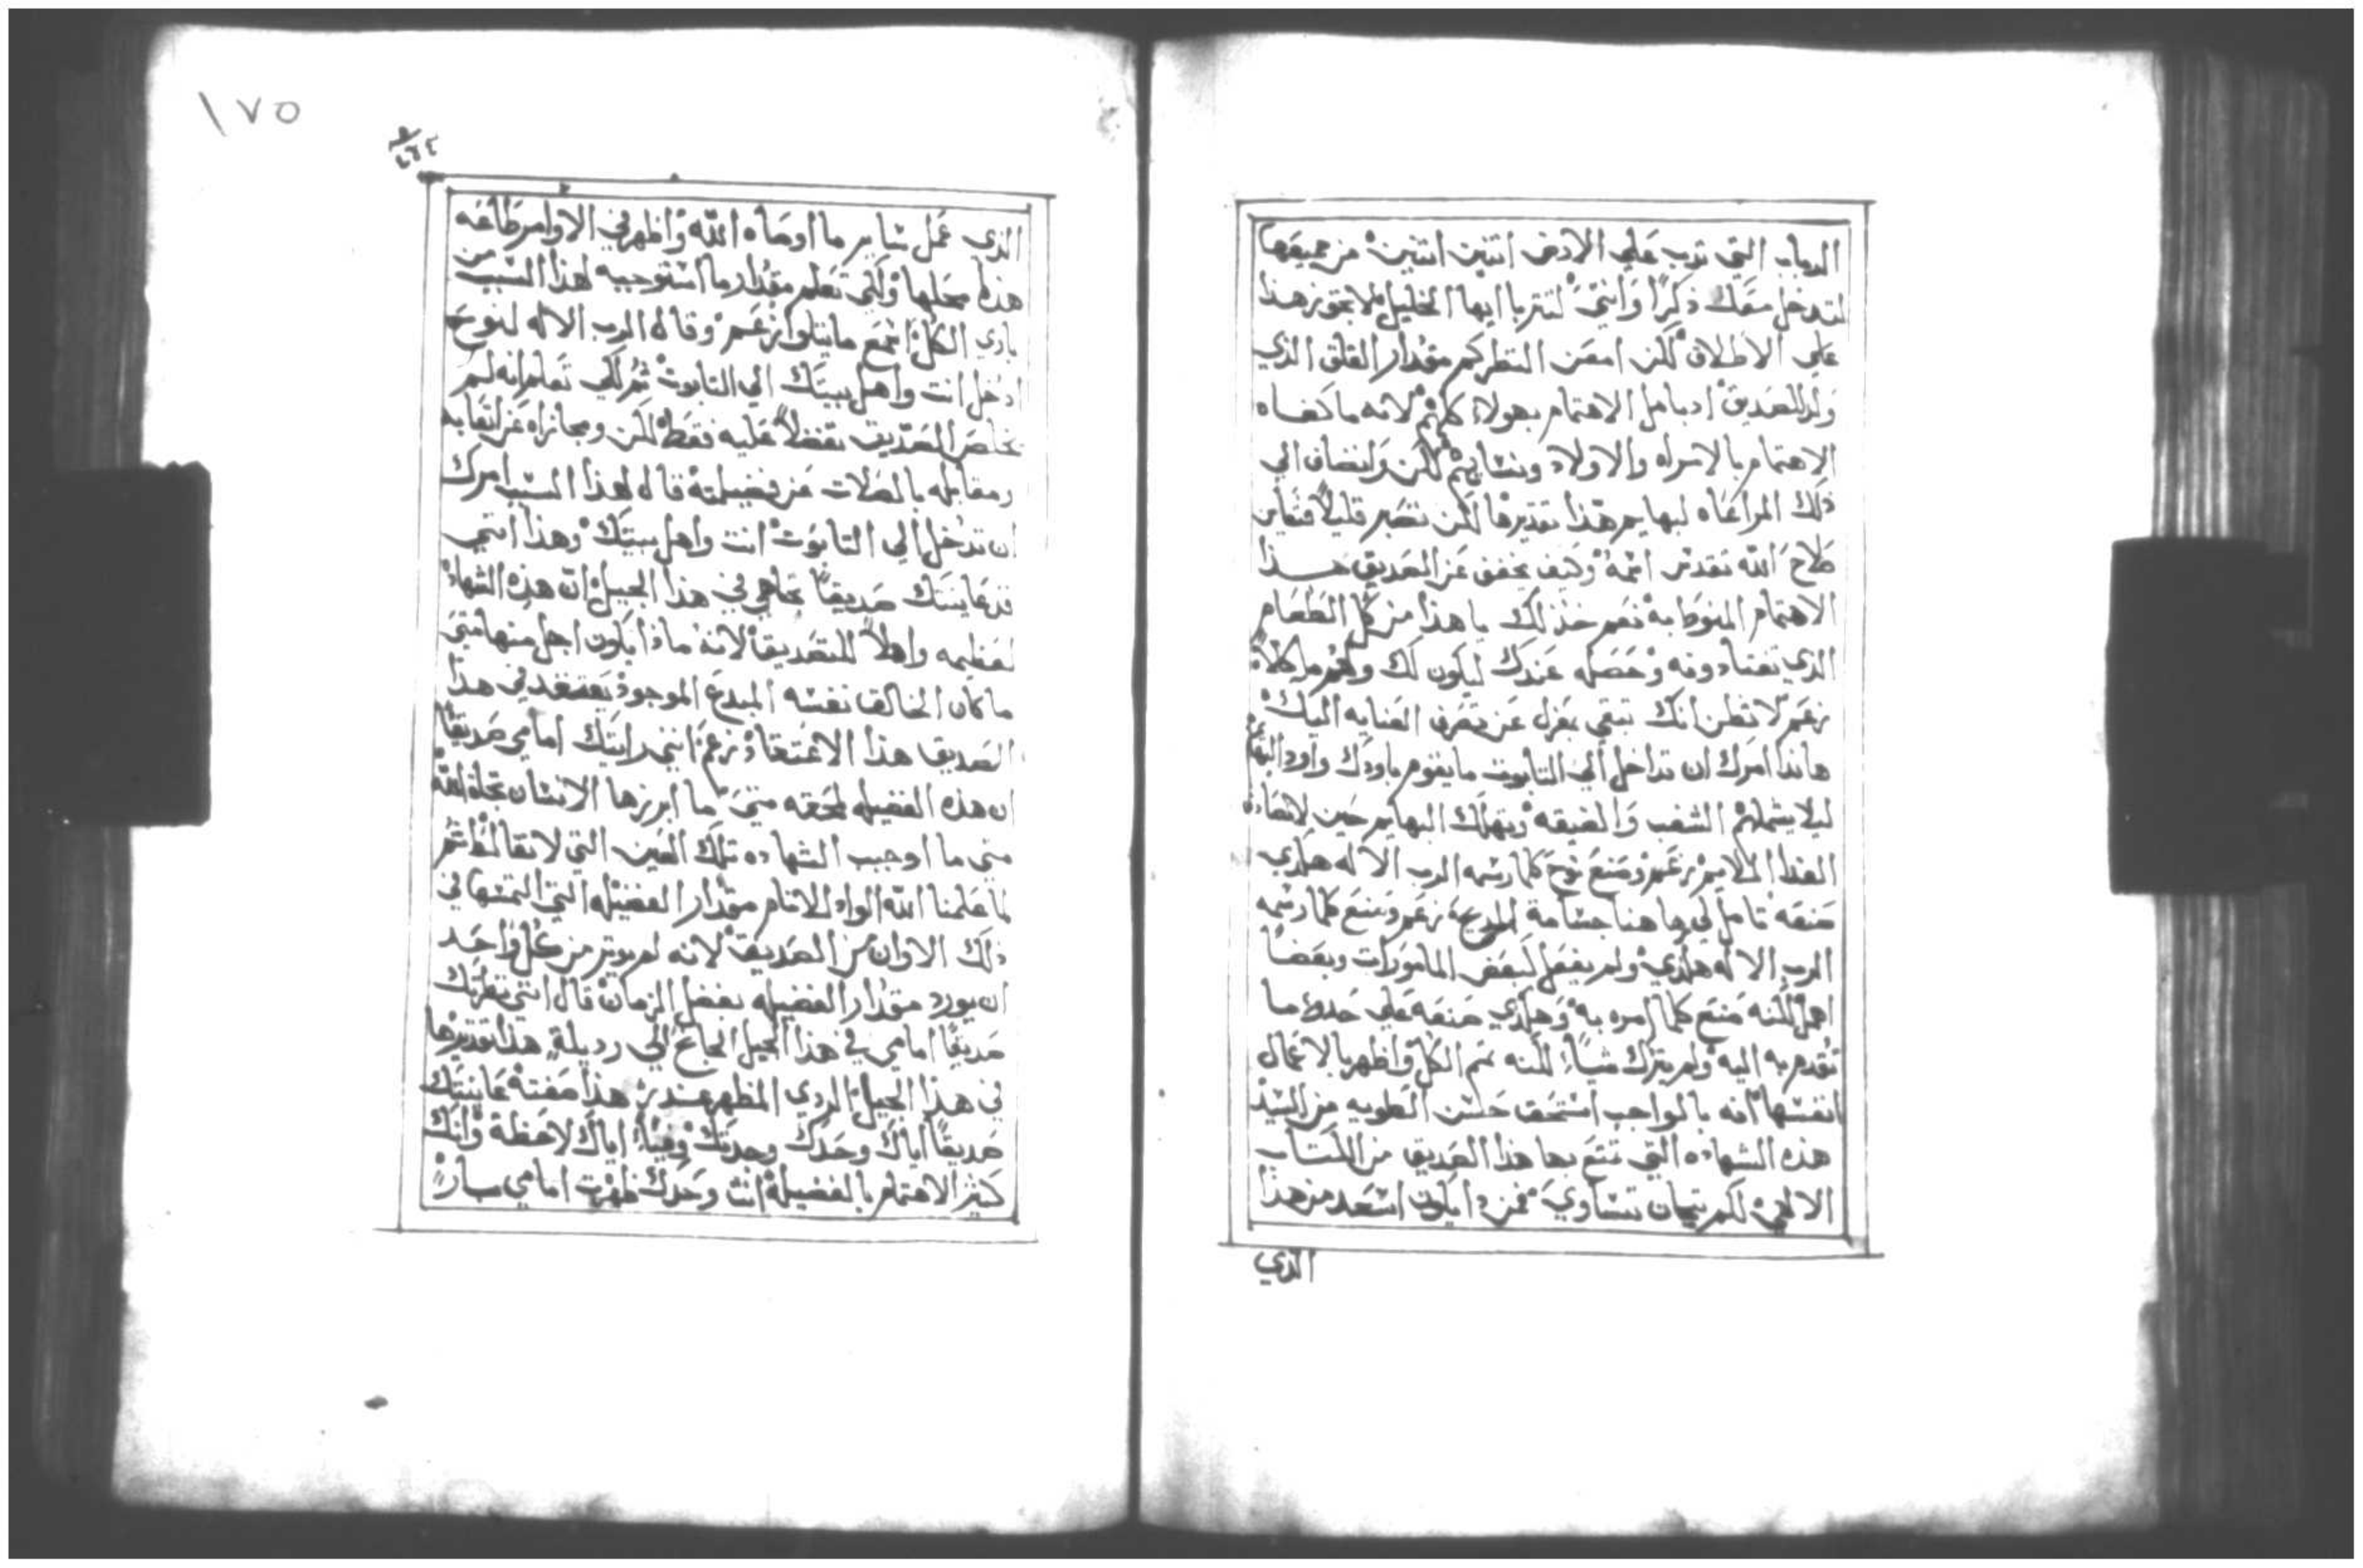 الدباب التي تدب علي الارض اتنين اتنين من جميعها
لتدخل معك ذكرًا وانثي لتتربا ايها الخليل لا تجوز هذا
علي الاطلاق لكن امعن النظر كم مقدار القلق الذي
ولد للصديق الاهتمام بهولاء كلهم لانه ما كفاه
الاهتمام بالامراه والاولاد ونسايهم لكن وانضاف الي
ذلك المراعاه لبهايم هذا تقديرها لكن تصبر قليلاً فتعاين
صلاح الله تقدس اسمه وكيف يخفف عن الصديق هذا
الاهتمام المنوط به نعم خذ لك يا هذا من كل الطعام
الذي تغتادونه وحصله عندك ليكون لك ولهم ماكلاً
زعم لا تظن انك تبقي بمعزل عن تصرف العنايه اليك
هانذا امرك ان تداخل الي التابوت ما يقوم باودك واود البهايم
ليلا يشملهم الشغب والضيقه وتهلك البهايم حين
الغذا الملايم زعم وصنع نوح كلما رسمه الرب الاله هكذي
صنعه تامل لي هاهنا جسامة المديح زعم وصنع كلما رسمه
الرب الاله هكذي ولم يفعل لبعض المامورات وبعضًا
اهمل لكنه صنع كلما امره به وهكذي صنعه علي حد ما
تقدم به اليه ولم يترك شيئًا لكنه تمم الكل واظهر بالاعمال
انفسها انه بالواجب استحق حسن الطويه من السيد
هذه الشهاده التي تمتع بها هذا الصديق من الكتاب
الالهي لكم تيجان تتساوي فمن ذا يكون اسعد من هذا
الذي
١٧٥
الذي عمل ساير ما اوصاه الله واظهر في الاوامر طاعه
هذا محلها ولكي تعلم مقدار ما استوجبه لهذا السبب من
باري الكل اسمع ما يتلوا زعم وقال الرب الاله لنوح
ادخل انت واهل بيتك الي التابوت ثم لكي تعلم انه لم
يخلص الصديق تفضلاً عليه فقط لكن ومجازاه عن اتعابه
ومقابله بالصلات عن فضيلته قال لهذا السبب امرك
ان تدخل الي التابوت انت واهل بيتك وهذا انني
قد عاينتك صديقًا تجاهي في هذا الجيل ان هذه الشهاده
لعظيمه واهلاً للتصديق لانه ماذا يكون اجل منها متي
ما كان الخالق نفسه المبدع الموجود يعتقد في هذا
الصديق هذا الاعتقاد زعم انني رايتك امامي صديقًا
ان هذه الفضيله لمحقه متي ما ابرزها الانسان تجاه الله
متي ما اوجب الشهاده تلك العين التي لا تغالط ثم
لما علمنا الله الواد للانام مقدار الفضيله التي التمسها في
ذلك الاوان من الصديق لانه لم يوثر من كل واحد
ان يورد مقدار الفضيله بفضل الزمان قال انني نظرتك
صديقًا امامي في هذا الجيل الجامح الي رديلةٍ هذا تقديرها
في هذا الجيل الردي المظهر هذا صفته عاينتك
صديقًا اياك وحدك وجدتك وفيًا اياك لاحظة وانك
كثير الاهتمام بالفضيلة انت وحدك ظهرت امامي بارًا